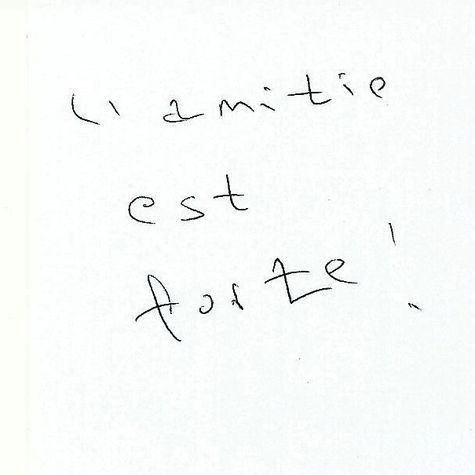 L'amitie
est
forte!